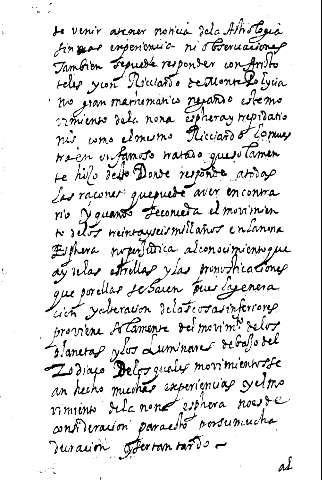 de venir atener noticia dela Astrologia
sin mas experiencia ni observaciones
tambien sepuede responder con Aristo
teles y con Ricciardo de Monte Policia
no gran mathematico negando este mo
vimiento dela nona esphera y trepidatio
nis como el mismo Ricciardo lo mues
tra en un famoso tratado que solamen
te hizo desto Donde responde a todas
las raçones que puede aver en contra
rio y quando se conceda el movimien
to delos treinta y seis mill años en la nona
Esphera no perjudica al conocimiento que
ay de las estrellas y las pronosticaciones
que por ellas se hacen pues la genera
cion y alteracion de las cosas inferiores
proviene solamente del movim.to de los
planetas y los Luminares debajo del
Zodiaco De los quales movimientos se
an hecho muchas experiencias y el mo
vimiento de la nona esphera no es de
consideracion para esto por su mucha
duracion y ser tan tardo